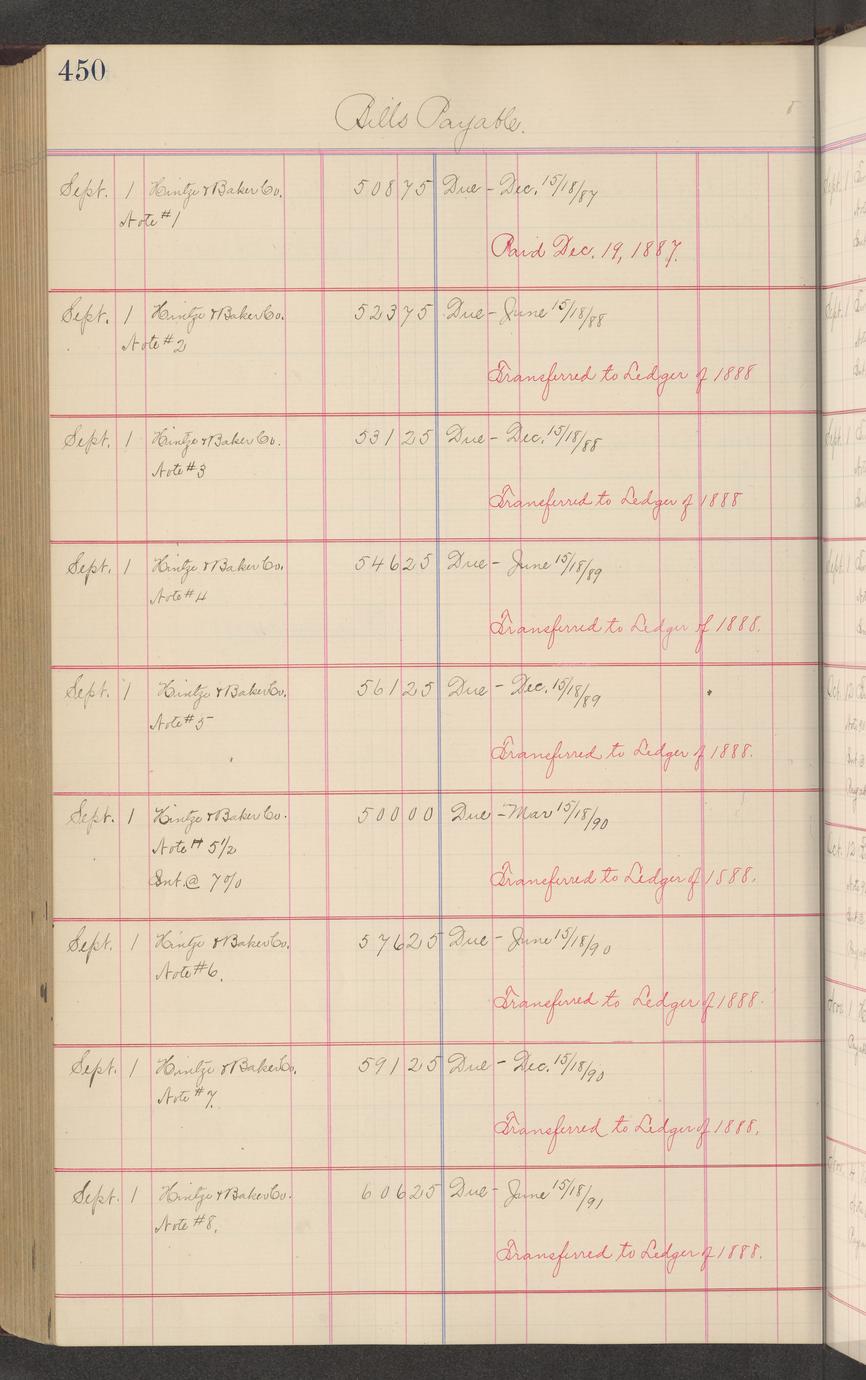 450
Bills Payable.
Sept. 1 Hintze & Baker Co. 508 75 Due - Dec. 15/18/87
Note #1
Paid Dec. 19, 1887.
Sept. 1 Hintze & Baker Co. 523 75 Due - June 15/18/88
Note #2
Transferred to Ledger of 1888
Sept. 1 Hintze & Baker Co. 531 25 Due - Dec. 15/18/88
Note #3
Transferred to Ledger of 1888
Sept. 1 Hintze & Baker Co. 546 25 Due - June 15/18/89
Note #4
Transferred to Ledger of 1888.
Sept. 1 Hintze & Baker Co. 561 25 Due - Dec. 15/18/89
Note #5
Transferred to Ledger of 1888.
Sept. 1 Hintze & Baker Co. 500 00 Due - Mar 15/18/90
Note # 5 1/2
Int. @ 7 0/0
Transferred to Ledger of 1888.
Sept. 1 Hintze & Baker Co. 576 25 Due - June 15/18/90
Note #6.
Transferred to Ledger of 1888.
Sept. 1 Hintze & Baker Co. 591 25 Due - Dec. 15/18/90
Note #7.
Transferred to Ledger of 1888.
Sept. 1 Hintze & Baker Co. 606 25 Due - June 15/18/91
Note #8.
Transferred to Ledger of 1888.